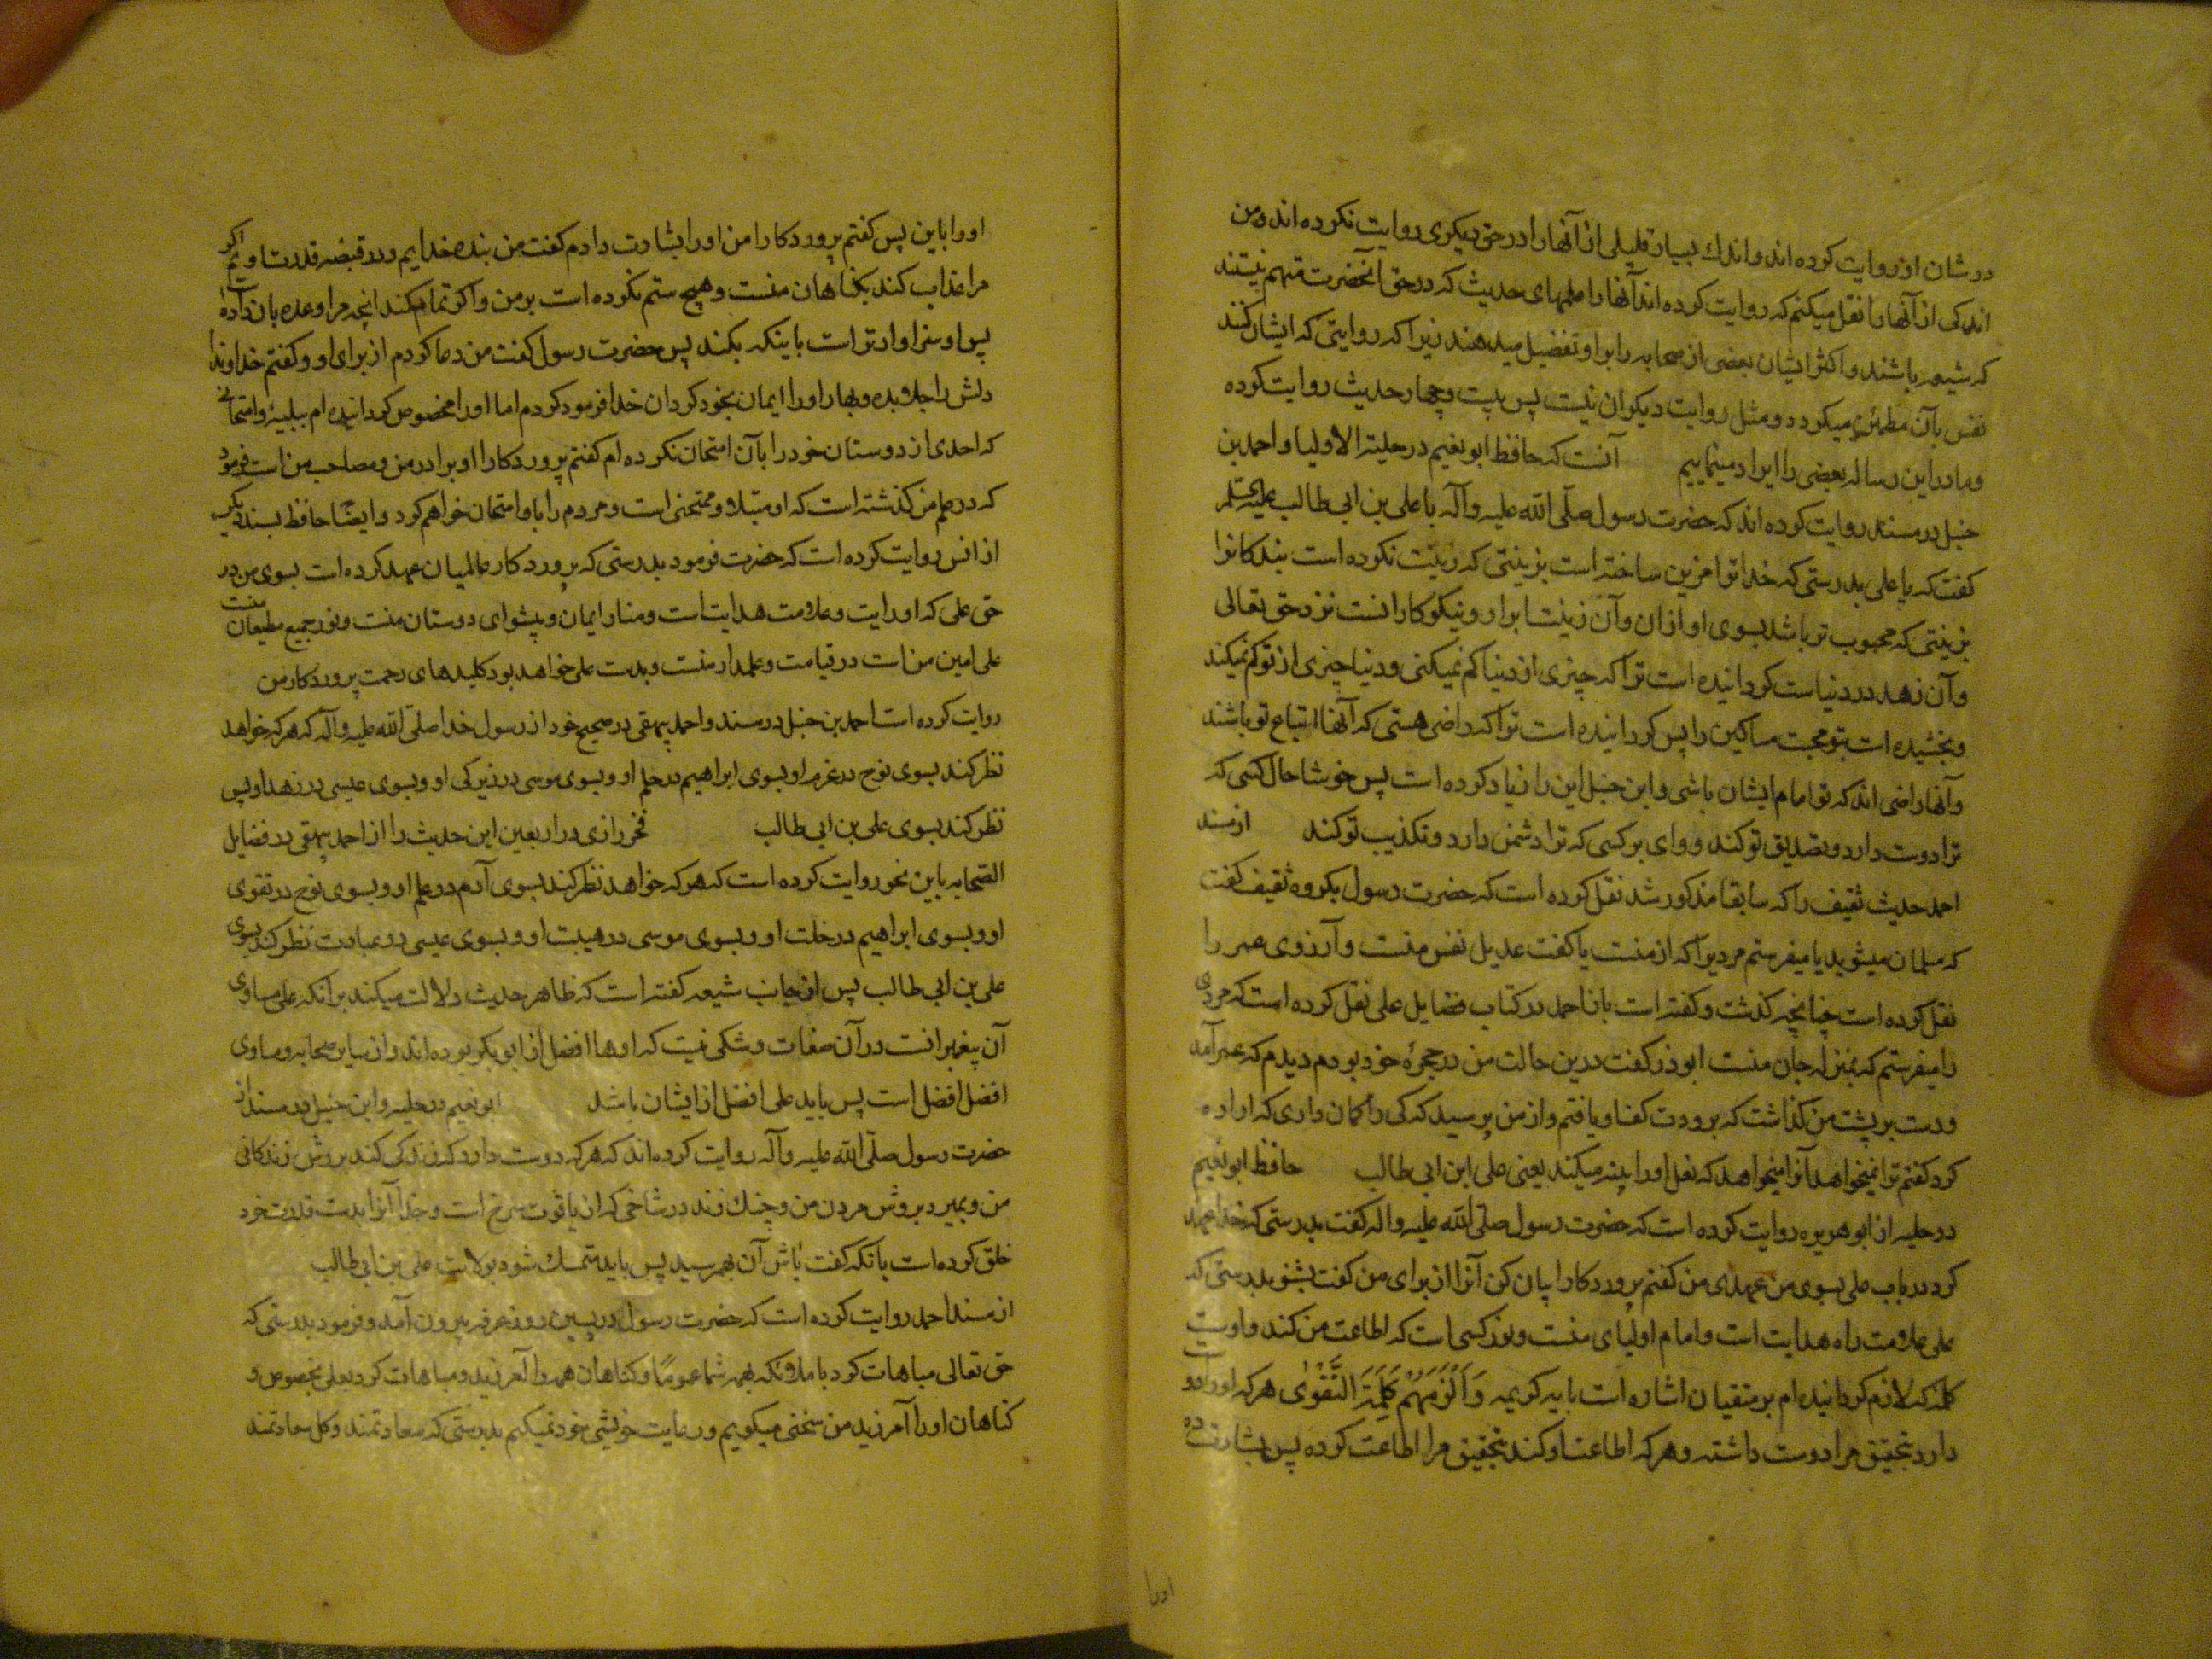 در شان او روایت کرده اند و اندك بسیار قلیلی از آنها را در حق دیکری روایت نکرده اند و من
اندکی از آنها را نقل میکنم که روایت کرده اند آنها را علمهای حدیث که در حق آنحضرت متهم نیستند
که شیعه باشند و اکثر ایشان بعضی از صحابه را بر او تفضیل میدهند زیرا که روایتی که ایشان کنند
نفس بآن مطمئن میکردد و مثل روایت دیکران نیست پس بیست و چهار حدیث روایت کرده
و ما در این رساله بعضی را ایراد مینماییم آنست که حافظ ابو نعیم در حلیة الاولیا و احمد بن
حنبل در مسند روایت کرده اند که حضرت رسول صلّی الله علیه و آله با علی بن ابی طالب
کفت که یا علی بدرستی که خدا ترا مزین ساخته است بزینتی که زینت نکرده است بندکانرا
بزینتی که محبوب تر باشد بسوی او از ان و آن زینت ابرار و نیکوکارانست نزد حق تعالی
و آن زهد در دنیاست کردانیده است ترا که چیزی از دنیا کم نمیکنی و دنیا چیزی از تو کم نمیکند
و بخشیده است بتو محبت مساکین را پس کردانیده است ترا که راضی هستی که آنها اتباع تو باشند
و آنها راضی اند که تو امام ایشان باشی و ابن حنبل این را زیاد کرده است پس خوشا حال کسی که
ترا دوست دارد و تصدیق تو کند و وای بر کسی که ترا دشمن دارد و تکذیب تو کند از مسند
احمد حدیث ثقیف را که سابقا مذکور شد نقل کرده است که حضرت رسول بکروه ثقیف کفت
که مسلمان میشوید یا میفرستم مردیرا که از منست یا کفت عدیل نفس منست و آرزوی عمر را
نقل کرده است چنانچه کذشت و کفته است باز احمد در کتاب فضایل علی نقل کرده است که مردی
را میفرستم که بمنزله جان منست ابوذر کفت درین حالت من در حجرهٔ خود بودم دیدم که عمر آمد
و دست بر پشت من کذاشت که برودت کف او یافتم و از من پرسید که کی را کمان داری که اراده
کرد کفتم ترا نمیخواهد آنرا میخواهد که نعل او را پینه میکند یعنی علی ابن ابی طالب حافظ ابو نعیم
در حلیه از ابو هریره روایت کرده است که حضرت رسول صلی الله علیه و اله کفت بدرستی که خدا عهد
کرد در باب علی بسوی من عهدی من کفتم پروردکارا بیان کن آنرا از برای من کفت بشنو بدرستی که
علی علامت راه هدایت است و امام اولیای منست و نور کسی است که اطاعت من کند و اوست
کلمه که لازم کردانیده ام بر متقیان اشاره است بآیه کریمه وَاَلْزَمَهُمْ کَلِمَةَ التَّقْوٰی هر که او را دو
دارد بتحقیق مرا دوست داشته و هر که اطاعت او کند بتحقیق مرا اطاعت کرده پس بشارت ده
اورا
او را باین پس کفتم پروردکارا من او را بشارت دادم کفت من بنده خدایم و در قبضه قدرت اویم اکر
مرا عذاب کند بکناهان منست و هیچ ستم نکرده است بر من و اکر تمام کند انچه مرا وعده بان داده
پس او سزاوارتر است باینکه بکند پس حضرت رسول کفت من دعا کردم از برای او و کفتم خداوندا
دلش را جلا بده و بهار او را ایمان بخود کردان خدا فرمود کردم اما او را مخصوص کردانیده ام ببلیه و امتحانی
که احدی از دوستان خود را بآن امتحان نکرده ام کفتم پروردکارا او برادر من و مصاحب من است فرمود
که در علم من کذشته است که او مبتلا و ممتحنی است و مردم را باو امتحان خواهم کرد و ایضًا حافظ بسند دیکر
از انس روایت کرده است که حضرت فرمود بدرستی که پروردکار عالمیان عهد کرده است بسوی من در
حق علی که او رایت و علامت هدایت است و منار ایمان و پیشوای دوستان منست و نور جمیع مطیعان منست
علی امین من است در قیامت و علمدار منست و بدست علی خواهد بود کلیدهای رحمت پروردکار من
روایت کرده است احمد بن حنبل در مسند و احمد بیهقی در صحیح خود از رسول خدا صلّی الله علیه و اله که هر که خواهد
نظر کند بسوی نوح در عزم او بسوی ابراهیم در حلم او و بسوی موسی در زیرکی او و بسوی عیسی در زهد او پس
نظر کند بسوی علی بن ابی طالب فخر رازی در اربعین این حدیث را از احمد بیهقی در فضایل
الصّحابه باین نحو روایت کرده است که هر که خواهد نظر کند بسوی آدم در علم او و بسوی نوح در تقوی
او و بسوی ابراهیم در خلت او و بسوی موسی در هیبت او و بسوی عیسی در عبادت نظر کند بسوی
علی بن ابی طالب پس از جانب شیعه کفته است که ظاهر حدیث دلالت میکند بر انکه علی مساوی
آن پیغمبرانست در آن صفات و شکی نیست که اوها افضل از ابو بکر بوده اند و از سایر صحابه و مساوی
افضل افضل است پس باید علی افضل از ایشان باشد ابو نعیم در حلیه و ابن حنبل در مسند از
حضرت رسول صلّی الله علیه و آله روایت کرده اند که هر که دوست دارد که زندکی کند بروش زندکانی
من و بمیرد بروش مردن من و چنك زند در شاخی که از یاقوت سرخ است و خدا آنرا بدست قدرت خود
خلق کرده است بانکه کفت باش آن بهم رسید پس باید متمسك شود بولایت علی بن ابی طالب
از مسند احمد روایت کرده است که حضرت رسول در پسین روز عرفه بیرون آمد و فرمود بدرستی که
حق تعالی مباهات کرد با ملائکه بهمه شما عمومًا و کناهان همه را آمرزید و مباهات کرد بعلی بخصوص و
کناهان او را آمرزید من سخنی میکویم و رعایت خویشی خود نمیکنم بدرستی که سعادتمند و کل سعادتمند